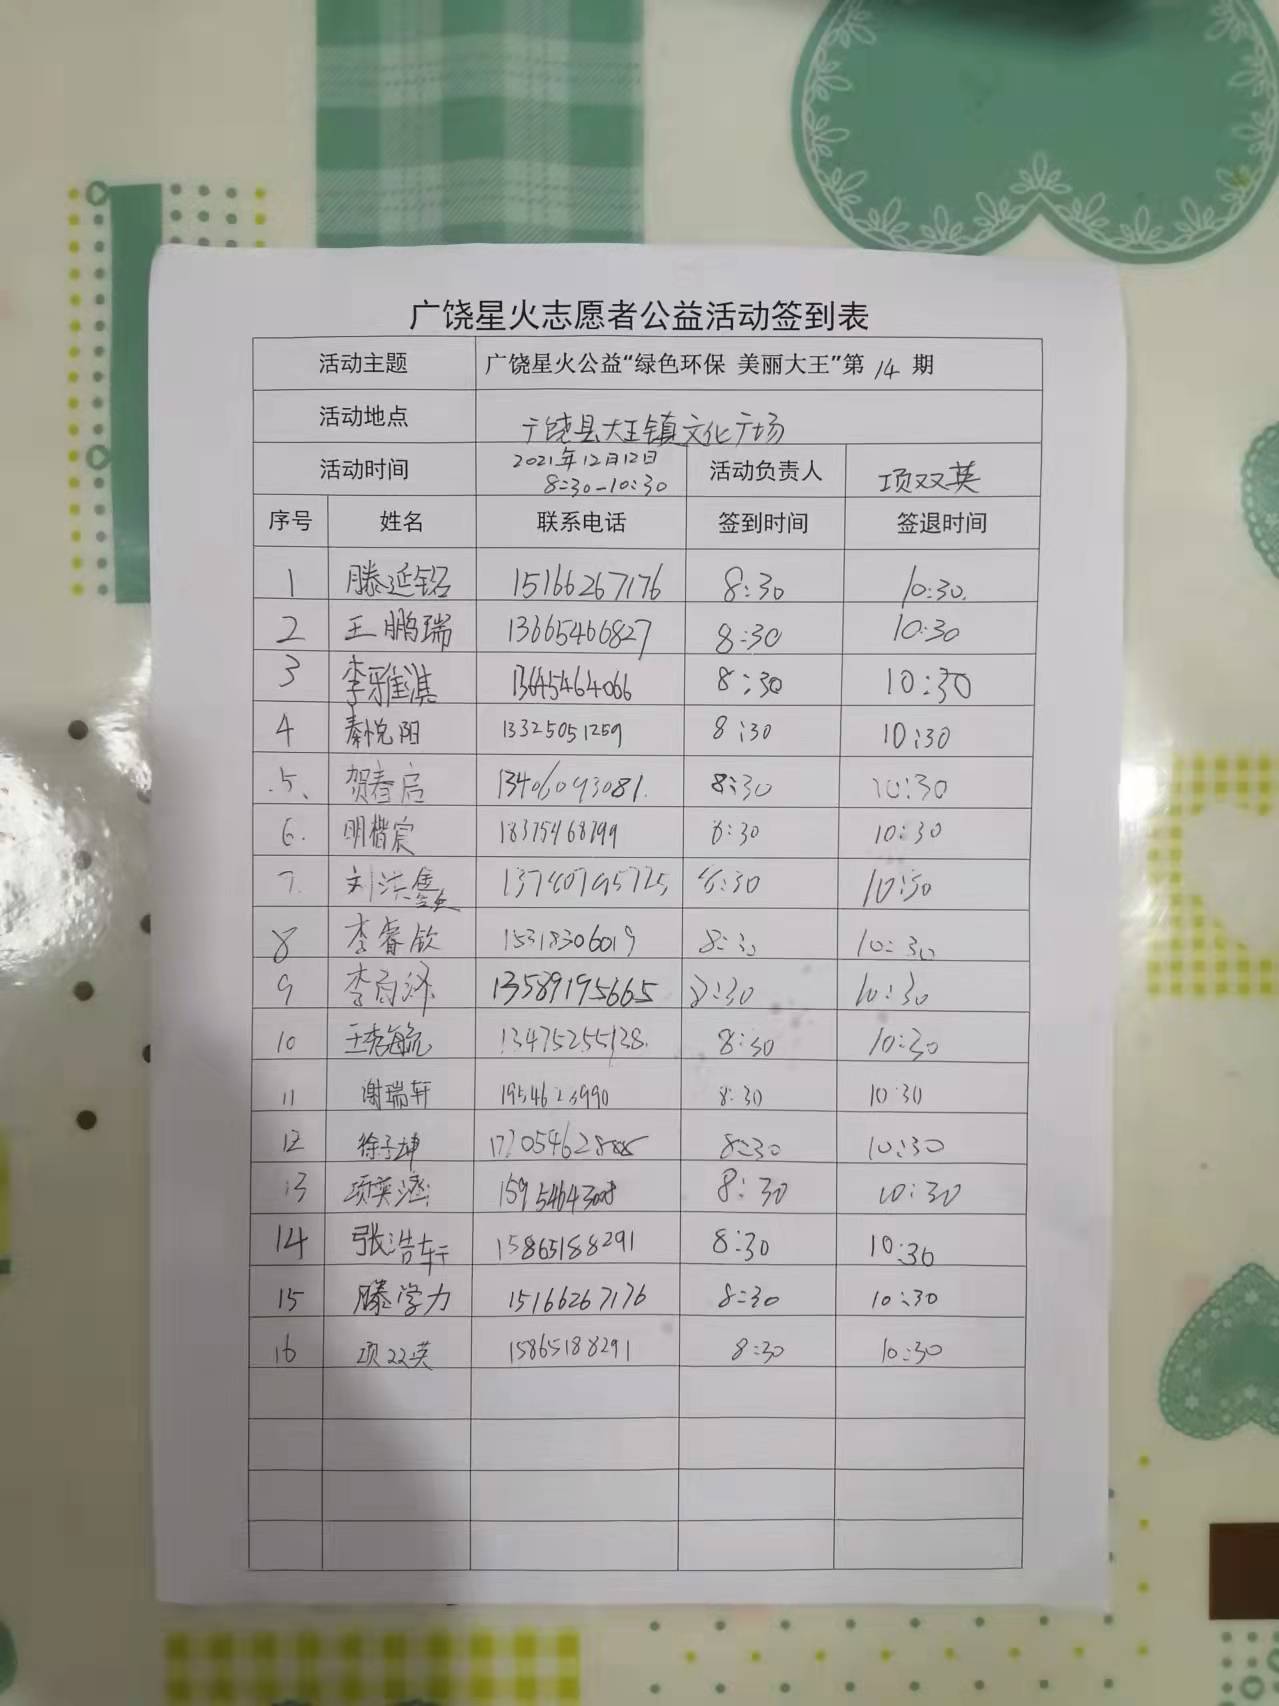 广饶星火志愿者公益活动签到表
活动主题 广饶星火公益“绿色环保 美丽大王”第 14 期
活动地点 广饶县大王镇文化广场
活动时间 2021年12月12日 8:30-10:30 活动负责人 项双英
序号 姓名 联系电话 签到时间 签退时间
1 滕延铭 15166267176 8:30 10:30
2 王鹏瑞 13665466827 8:30 10:30
3 李雅淇 13645464066 8:30 10:30
4 秦悦阳 13325051259 8:30 10:30
5、 贺春启 13406093081. 8:30 10:30
6. 明楷宸 18375468799 8:30 10:30
7. 13740795725 8:30 10:30
8 李睿钦 15318306019 8:30 10:30
9 13589195665 8:30 10:30
10 王李海航 13475255138. 8:30 10:30
11 谢瑞轩 8:30 10:30
12 徐子坤 8:30 10:30
13 8:30 10:30
14 张浩轩 15865188291 8:30 10:30
15 滕学力 15166267176 8:30 10:30
16 项双英 15865188291 8:30 10:30